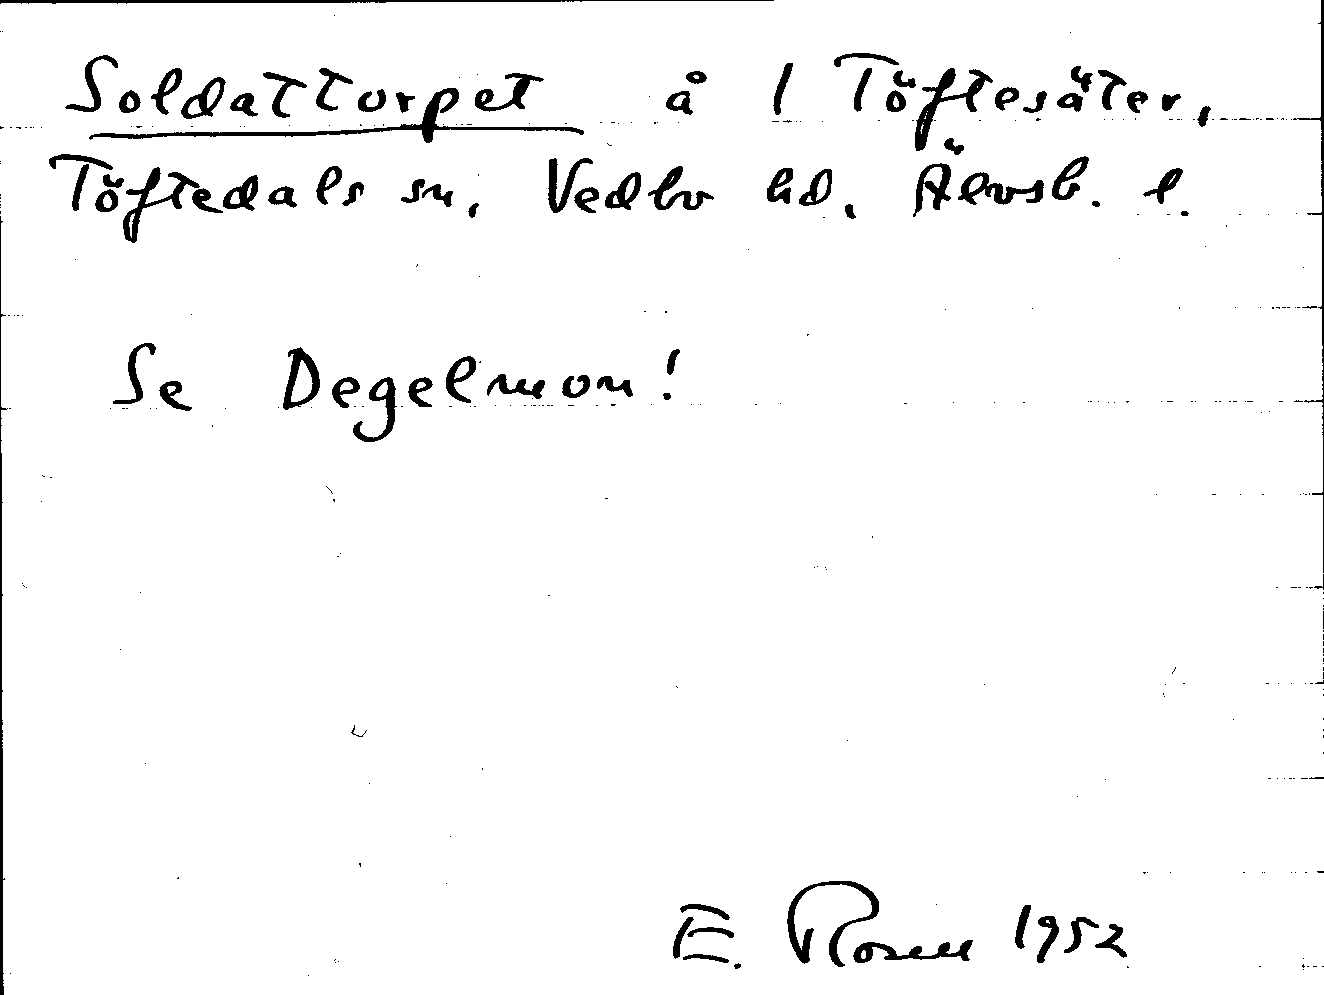 Soldattorpet å 1 Töftesäter,
Töftedals sn, Vedbo hd, Älvsb. l.
Se Degelmon!
E. Rosell 1952